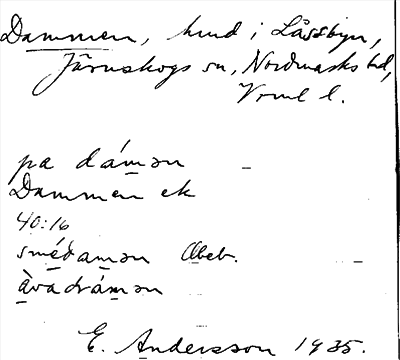 Dammen, hmd i Låssbyn,
Järnskogs sn, Nordmarks hd,
Vrml l.
pa dámən
Dammen ek
40:16
smédamən Obeb.
àvadrámən
E. Andersson 1935.